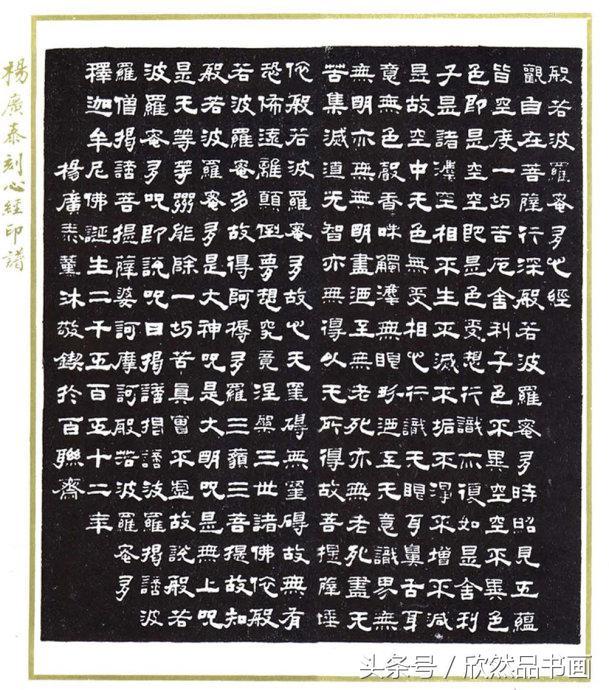 般若波羅蜜多心經
觀自在菩薩行深般若波羅蜜多時昭見五蘊
皆空度一切苦厄舍利子色不異空空不異色
色即是空空即是色受想行識亦復如是舍利
子是諸灋空相不生不滅不垢不淨不增不減
是故空中无色無受相心行識无眼耳鼻舌身
意無色聲香味觸灋無眼界迺至无意識界無
無明亦無無明盡迺至無老死亦無老死盡无
苦集滅道无智亦無得以无所得故菩提薩埵
依般若波羅蜜多故心无罣礙無罣礙故無有
恐怖遠離顛倒夢想究竟涅槃三世諸佛依般
若波羅蜜多故得阿耨多羅三藐三菩提故知
般若波羅蜜多是大神咒是大明咒是無上咒
是无等等咒能除一切苦真實不虛故說般若
波羅蜜多咒即說咒曰揭諦揭諦波羅揭諦波
羅僧揭諦菩提薩婆訶摩訶般若波羅蜜多
釋迦牟尼佛誕生二千五百五十二年
楊廣泰薰沐敬鍥於百聯齋
楊廣泰刻心經印譜
头条号/欣然品书画